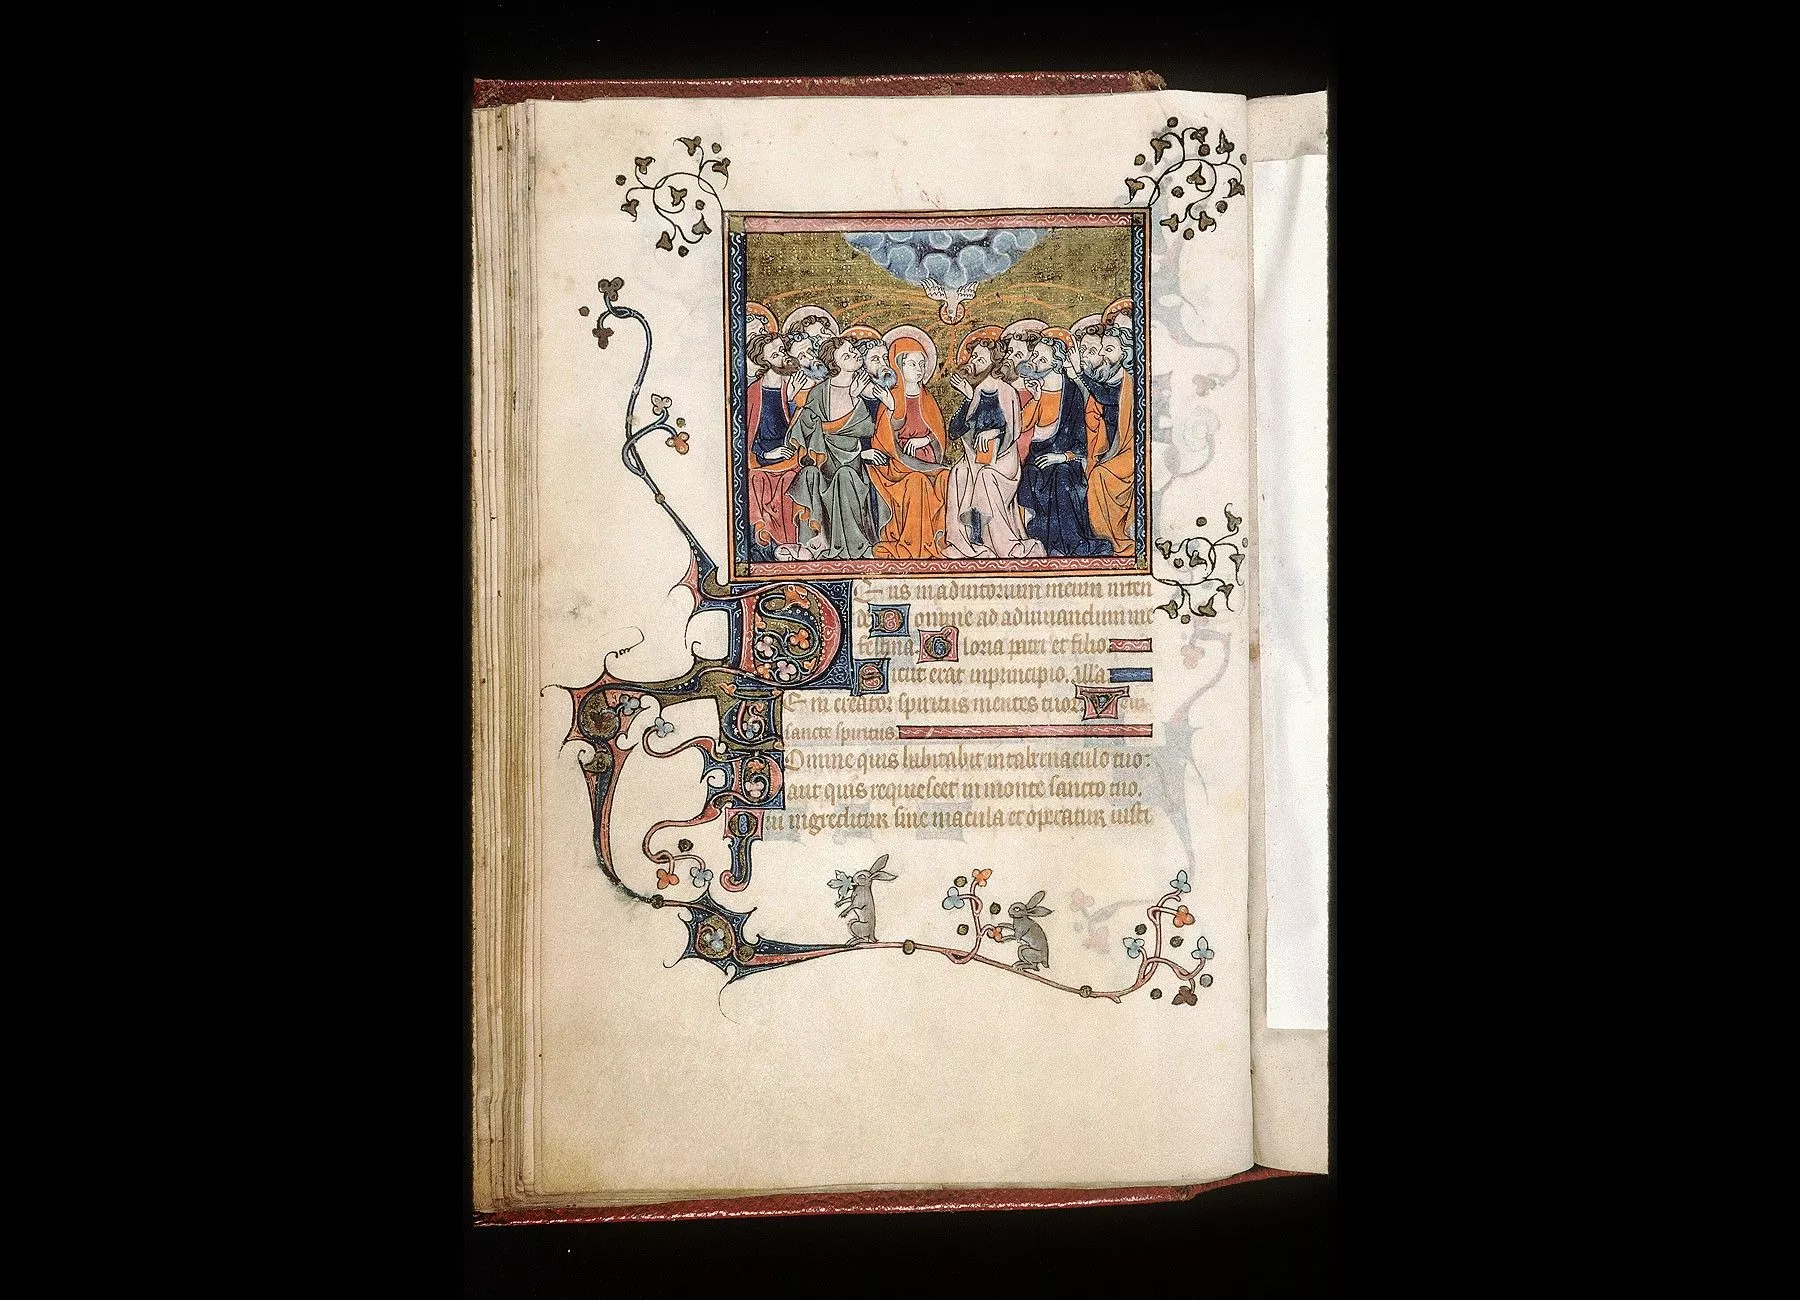 Deus in adiutorium meum inten
de Domine ad adiuuandum me
festina. Gloria patri et filio.
Sicut erat in principio. alla
Veni creator spiritus mentes tuor. Veni
sancte spiritus.
Domine quis habitabit in tabernaculo tuo:
aut quis requiescet in monte sancto tuo.
Qui ingreditur sine macula et operatur iusti